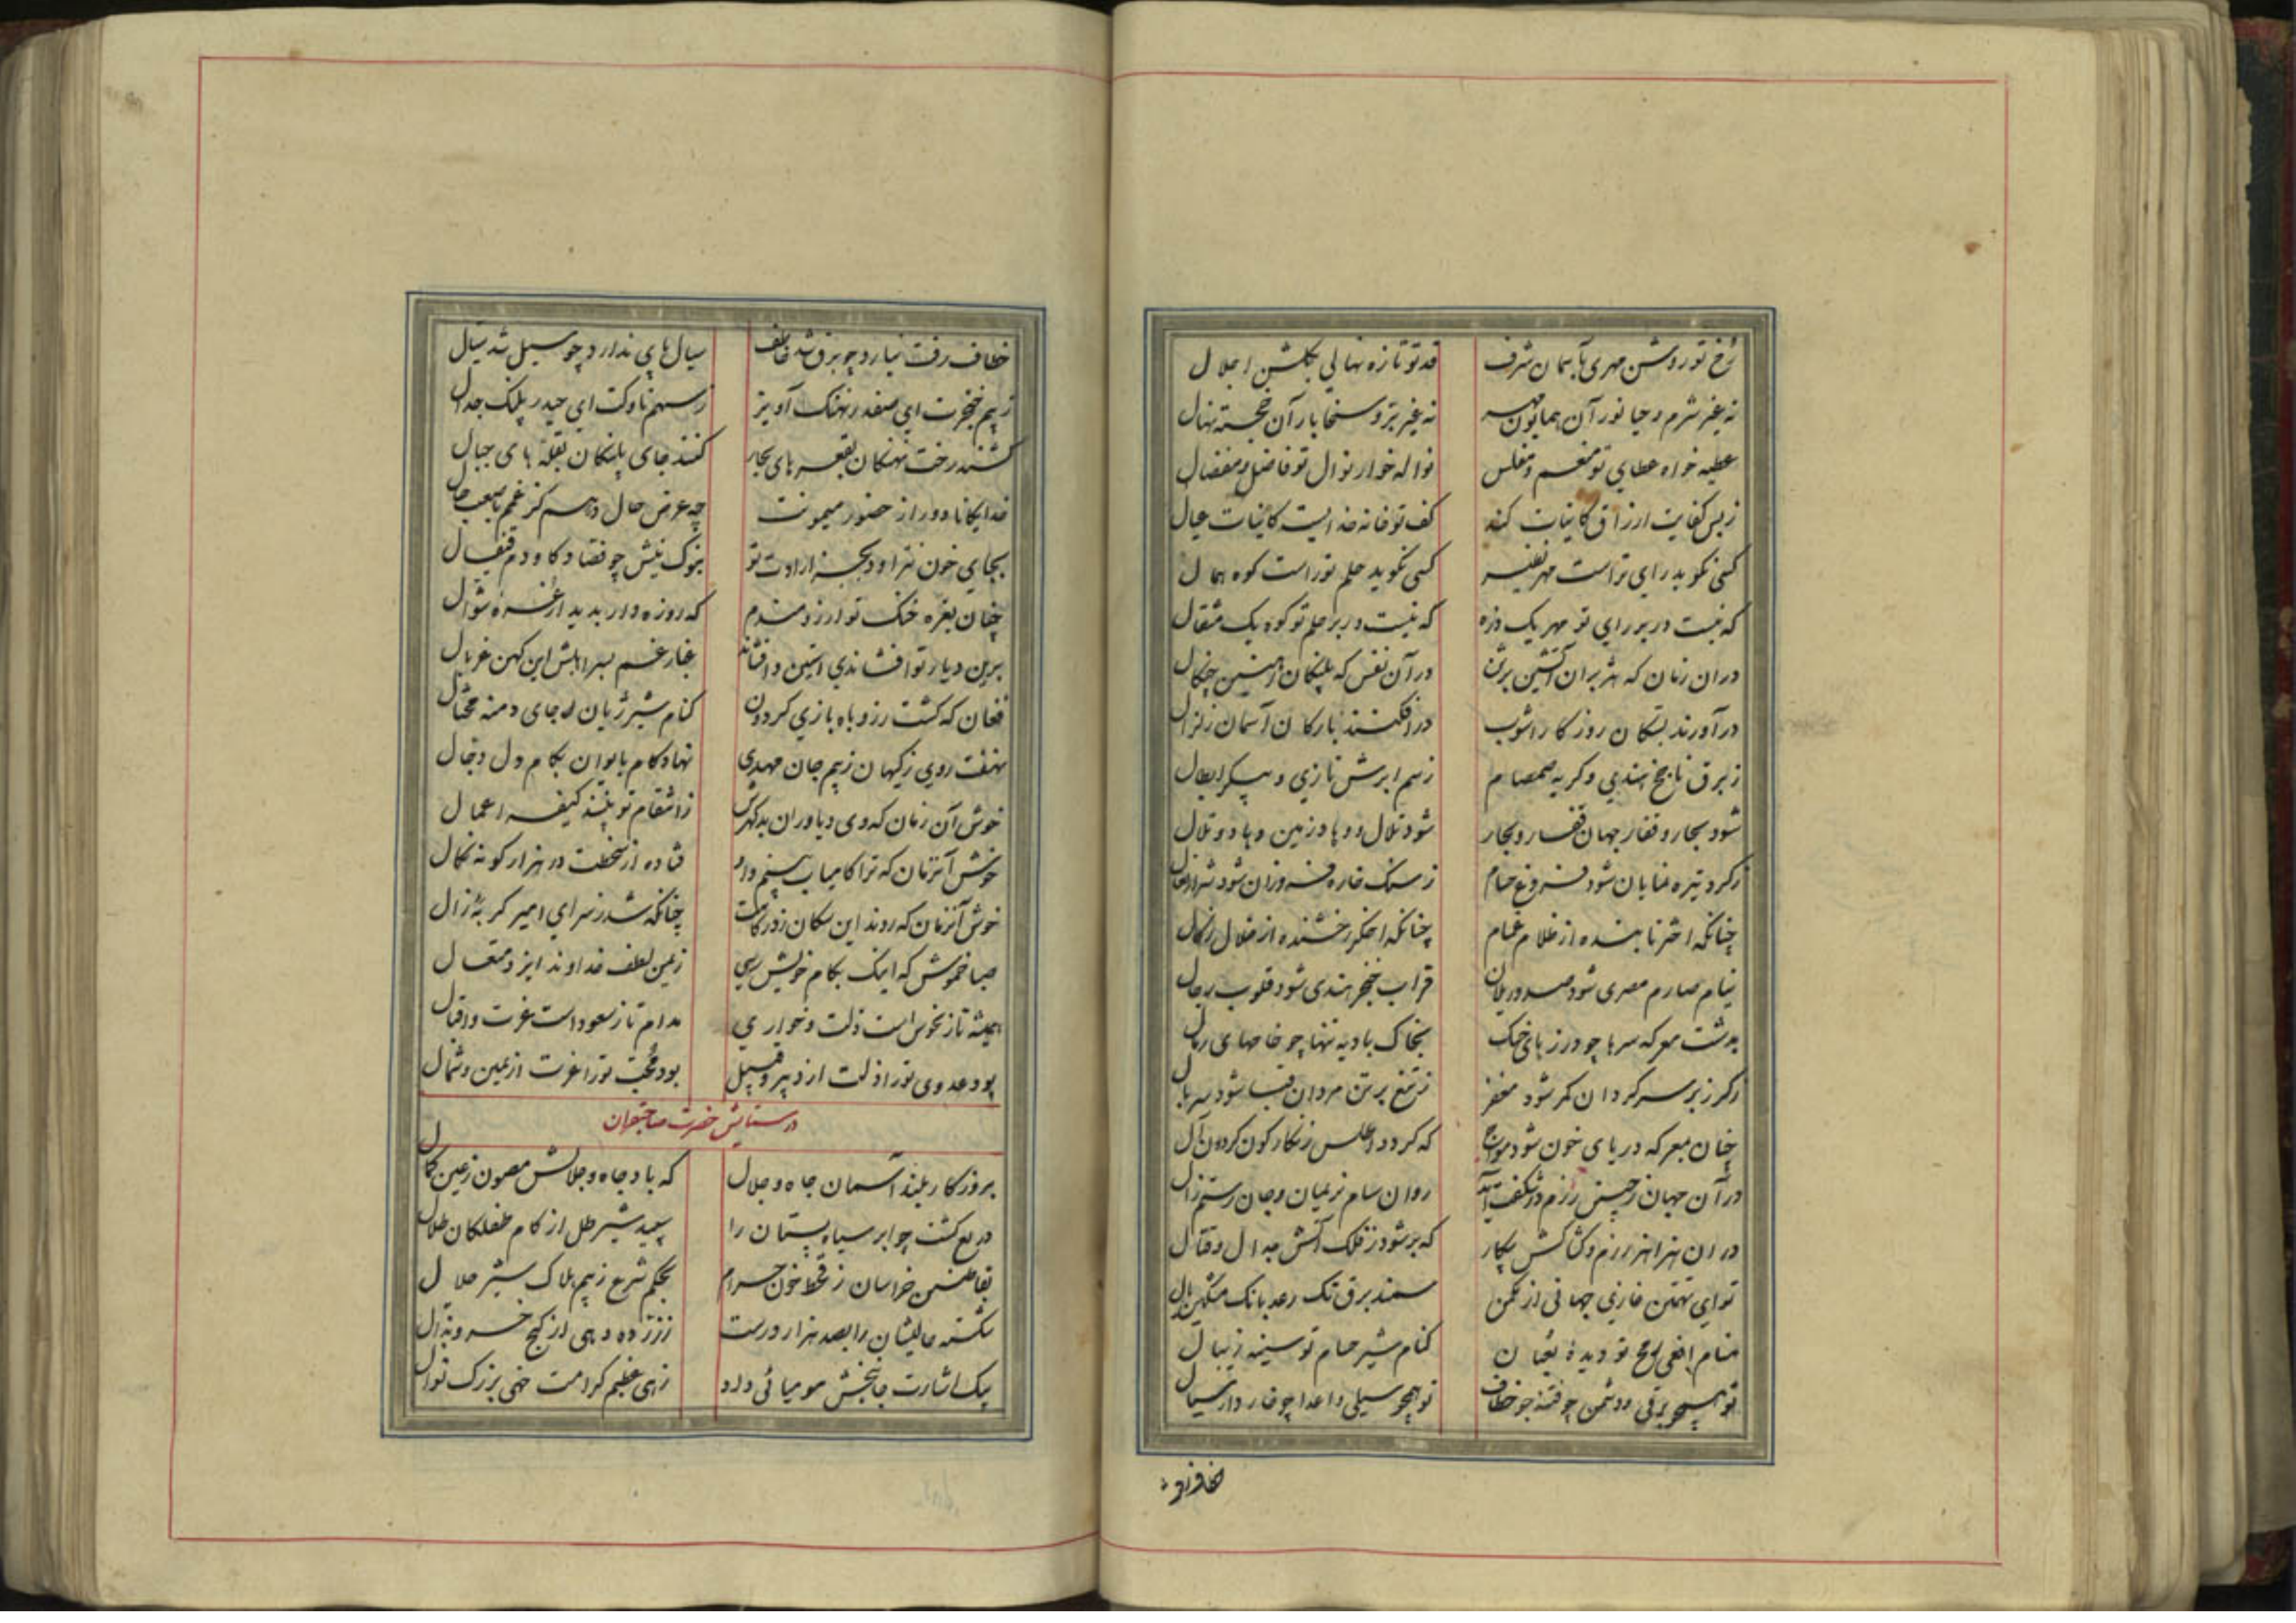 رخ تو روشن مهری بآسمان شرف قد تو تازه نهالی بگلشن اجلال
نه غیر شرم و حیا نور آن همایون مهر نه غیر بر و سخا بار آن خجسته نهال
عطیه خواه عطای تو منعم و مفلس نواله خوار نوال تو فاضل و مفضال
ز بس کفایت ارزاق کاینات کند کف تو خانه خدایست کاینات عیال
کسی نگوید رای تراست مهر نظیر کسی نگوید حلم تو راست کوه همال
که نیست در بر رای تو مهر یک ذره که نیست در بر حلم تو کوه یک مثقال
در ان زمان که هژبران آتشین برثن در آن نفس که پلنگان آهنین چنگال
در آورند بسکان روزگار آشوب در افکنند بارکان آسمان زلزال
ز برق ناچخ هندی و گریه صمصام ز سم ابرش تازی و پیکر ابطال
شود بحار و قفار جهان قفار و بحار شود تلال و وهاد زمین وهاد و تلال
ز گرد تیره نمایان شود فروغ حسام ز سنگ خاره فروزان شود شرار نعال
چنانکه اختر تابنده از ظلام غمام چنانکه اخگر رخشنده از خلال زگال
نیام صارم مصری شود صدور یلان قراب خنجر هندی شود قلوب رجال
بدشت معرکه سرها چو در ز پای خنک بخاک بادیه تنها چو خامهای رمال
ز گرز بر سر گردان کمر شود مغفر ز تیغ بر تن مردان قبا شود سربال
چنان معرکه دریای خون شود مواج که گردد اطلس زنگارگون گردون آل
در آن جهان ز چنین رزم در شگفت آید روان سام نریمان و جان رستم زال
در ان هزاهز رزم و کشاکش پیکار که بر شود ز فلک آتش جدال و قتال
تو ای تهمتن غازی جهانی از مکمن سمند برق تک رعد بانک مشکین یال
منام افعی رمح تو دیده ثعبان کنام شیر حسام تو سینه ریبال
تو همچو برقی و دشمن چو فتنه جو خطاف تو همچو سیلی و اعدا چو خار دار سیال
خطاف رفت
خطاف رفت نیارد چو برق شد خاطف سیال پای ندارد چو سیل شد سیال
ز بیم خنجرت ای صفدر نهنگ آویز ز سهم ناوکت ای حیدر پلنگ جدال
کشند رخت نهنگان بقعرهای بحار کنند جای پلنگان بقلهای جبال
خدایگانا دور از حضور میمونت چه عرض حال دهم کز غمم بصعب حال
بجای خون نتراود بجز ارادت تو بنوک نیش چو فصاد کاودم قیفال
چنان بغره خنک تو آرزومندم که روزه دار بدیدار غره شوال
برین دیار تو افشاندی استین و افشاند غبار غم بسر اهلش این کهن غربال
فغان که گشت ز روباه بازی گردون کنام شیر ژیان جای دمنه محتال
نهفت روی ز کیهان ز بیم جان مهدی نهاد کام بایوان بکام دل دجال
خوش آن زمان که وی و یاوران بدگهرش ز انتقام تو بینند کیفر اعمال
خوش آنزمان که ترا کامیاب بینم و او فتاده از سخطت در هزار گونه نکال
خوش آنزمان که روند این سکان ز درگاهت چنانکه شد ز سرای امیر گربه زال
صبا خموش که اینک بکام خویش رسی ز یمن لطف خداوند ایزد متعال
همیشه تا ز نحوس است ذلت و خواری مدام تا ز سعود است عزت و اقبال
بود عدوی تو را ذلت از دبیر و قبیل بود محب تو را عزت از یمین و شمال
در ستایش حضرت صاحبقران
بروزگار بلند آسمان جاه و جلال که باد جاه و جلالش مصون ز عین کمال
دریغ گشت چو ابر سیاه پستان را سپید شیر طل از کام طفلکان طلال
بقاطنین خراسان ز قحط خون حرام بحکم شرع ز بیم هلاک شیر حلال
شکسته حالیشان را بصد هزار درست ززر ده دهی از گنج خسرو بذال
بیک اشارت جانبخش مومیائی داد زهی عظیم کرامت خهی بزرگ نوال